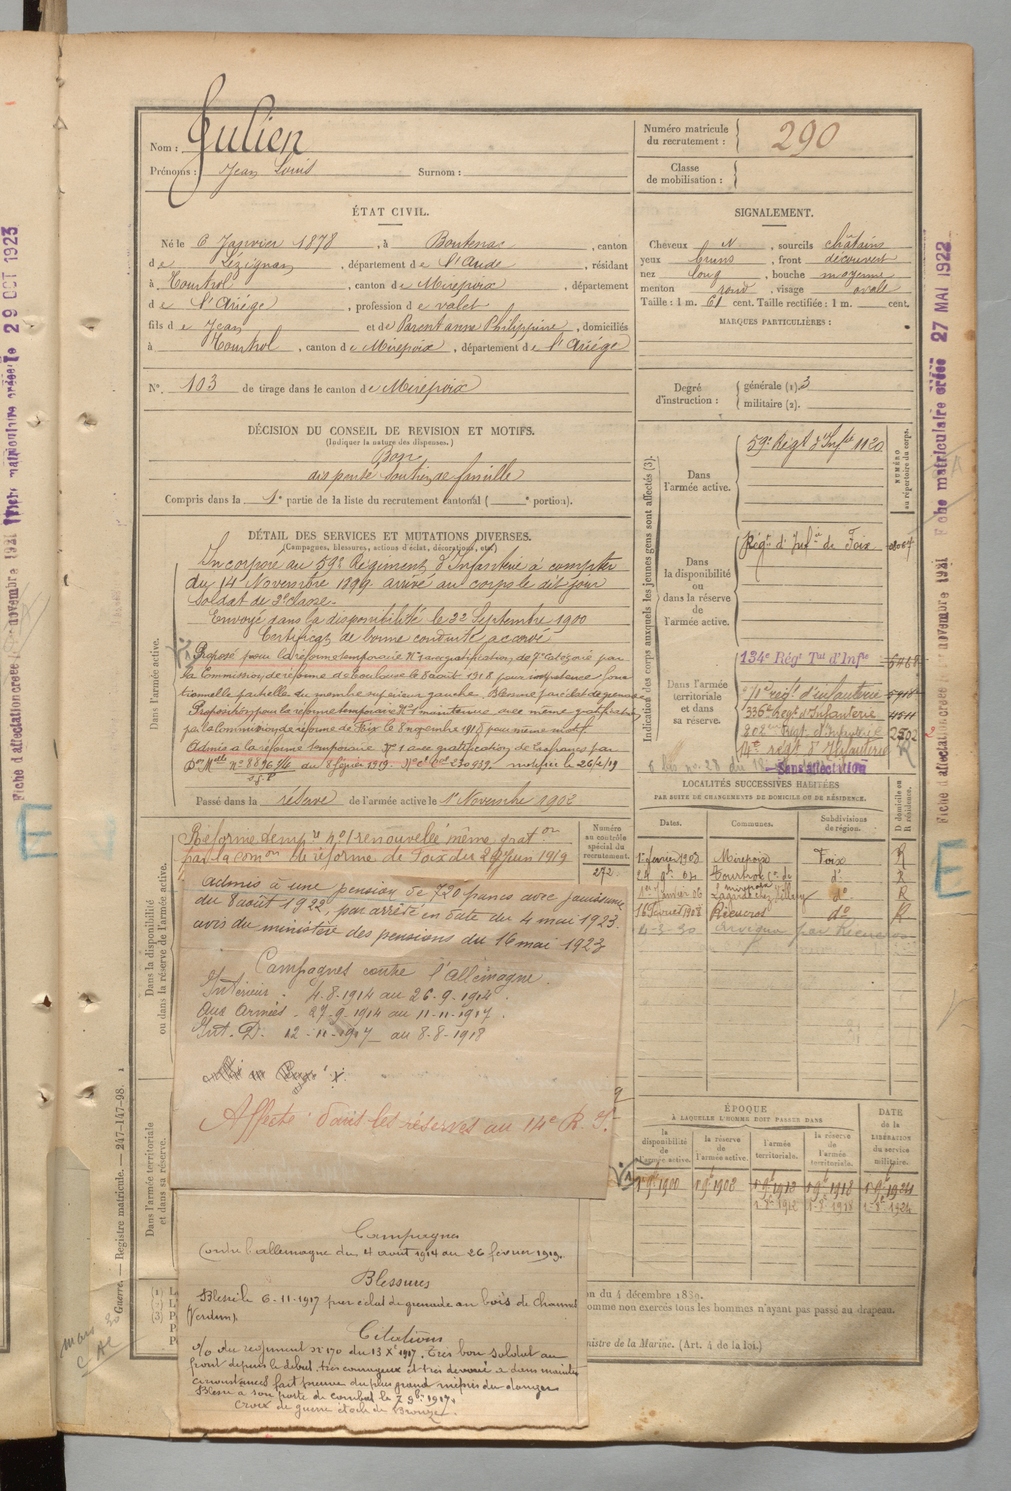 Nom : Julien
Prénoms : Jean Louis Surnom :
Numéro matricule du recrutement : 290
Classe de mobilisation :
ÉTAT CIVIL.
Né le 6 Janvier 1878, à Boutenac, canton
de Lézignan, département de l'Aude, résidant
à Tourtrol, canton de Mirepoix, département
de l'Ariège, profession de valet
fils de Jean et de Parent anne Philippine, domiciliés
à Tourtrol, canton de Mirepoix, département de l'Ariège
N°. 103 de tirage dans le canton de Mirepoix
SIGNALEMENT.
Cheveux N, sourcils châtains
yeux bruns, front découvert
nez long, bouche moyenne
menton rond, visage ovale
Taille : 1 m. 61 cent. Taille rectifiée : 1 m. cent.
MARQUES PARTICULIÈRES :
Degré d'instruction : générale (1). 3
militaire (2).
DÉCISION DU CONSEIL DE REVISION ET MOTIFS.
(Indiquer la nature des dispenses.)
Bon
dispensé soutien de famille
Compris dans la 1e partie de la liste du recrutement cantonal ( e portion).
DÉTAIL DES SERVICES ET MUTATIONS DIVERSES.
(Campagnes, blessures, actions d'éclat, décorations, etc.)
Dans l'armée active.
Incorporé au 59e Régiment d'Infanterie à compter
du 14 Novembre 1899 arrivé au corps le dit jour
soldat de 2e classe.
Envoyé dans la disponibilité le 22 Septembre 1900
Certificat de bonne conduite accordé
Proposé pour la réforme temporaire N°1 avec gratification de 7e catégorie par
la Commission de réforme de Toulouse le 8 août 1918 pour impotence fonc
tionnelle partielle du membre supérieur gauche. Blessure par éclat de grenade
Proposition pour la réforme temporaire N°1 maintenue avec même gratification
par la Commission de réforme de Foix le 8 novembre 1918 pour même motif.
Admis à la réforme temporaire N°1 avec gratification de francs par
du 8 février 1919. notifiée le 26/2/19
Passé dans la réserve de l'armée active le 1er Novembre 1902
Indication des corps auxquels les jeunes gens sont affectés (3).
NUMÉRO au répertoire du corps.
Dans l'armée active. 59e Régt d'Infie 1120
Dans la disponibilité ou dans la réserve de l'armée active. Régt d'Infie de Foix
Dans l'armée territoriale et dans sa réserve.
134e Régt Tal d'Infie
71e régt d'infanterie
336e Régt d'Infanterie 4511
802e Régt d'Infanterie 2502
14e régt d'Infanterie R
Sans affectation
LOCALITÉS SUCCESSIVES HABITÉES
PAR SUITE DE CHANGEMENTS DE DOMICILE OU DE RÉSIDENCE.
Dates. Communes. Subdivisions de région. D domicile ou R résidence.
1er février 1903 Mirepoix Foix R
Tourtrol do R
1er Janvier 06 Lagarde do R
16 février 1908 Rieucros do R
4-3-30
Dans la disponibilité ou dans la réserve de l'armée active.
Numéro au contrôle spécial du recrutement.
272
Réforme tempre n°1 renouvelée même graton
par la comon de réforme de Foix du 28 Juin 1919
Admis à une pension de 720 francs avec jouissance
du 8 août 1922, par arrêté en date du 4 mai 1923.
avis du ministère des pensions du 16 mai 1923
Campagnes contre l'Allemagne.
Intérieur. 4-8-1914 au 26-9-1914.
Aux Armées. 27-9-1914 au 11-11-1917.
Int. D. 12-11-1917 au 8-8-1918
Affecté dans les réserves au 14e R.I.
ÉPOQUE
À LAQUELLE L'HOMME DOIT PASSER DANS
DATE de la LIBÉRATION du service militaire.
la disponibilité de l'armée active. la réserve de l'armée active. l'armée territoriale. la réserve de l'armée territoriale.
1902
1-8e-1912 1-8e-1918 1-8e-1924
Dans l'armée territoriale et dans sa réserve.
Campagnes
Contre l'allemagne du 4 août 1914 au 26 février 1919.
Blessures
Blessé le 6-11-1917 par éclat de grenade au bois de Chaume
(Verdun).
Citations
O/O du régiment n° 170 du 13 Xe 1917. Très bon soldat au
front depuis le début très courageux et très dévoué a dans maintes
circonstances fait preuve du plus grand mépris du danger
Blessé à son poste de combat le 7 9bre 1917.
Croix de guerre étoile de Bronze.
on du 4 décembre 1889.
omme non exercés tous les hommes n'ayant pas passé au drapeau.
nistre de la Marine. (Art. 4 de la loi.)
Guerre. — Registre matricule. — 247-147-98.
Fiche matriculaire créée 27 MAI 1922
Fiche matriculaire créée le 29 OCT 1923
E
E